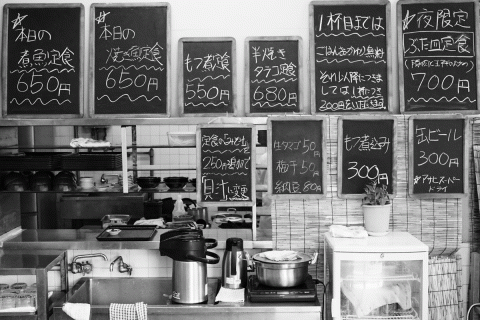 ☆本日の
煮魚定食
650円
☆本日の
焼魚定食
650円
もつ煮定食
550円
半焼き
タラコ定食
680円
1杯目までは
ごはんおかわり無料
それ以降につきま
しては1杯につき
200円を頂戴
☆夜限定
定食
700円
定食の
250円追加で
貝汁に変更
生タマゴ50円
梅干50円
納豆80円
もつ煮込み
300円
缶ビール
300円
☆アサヒスーパー
ドライ